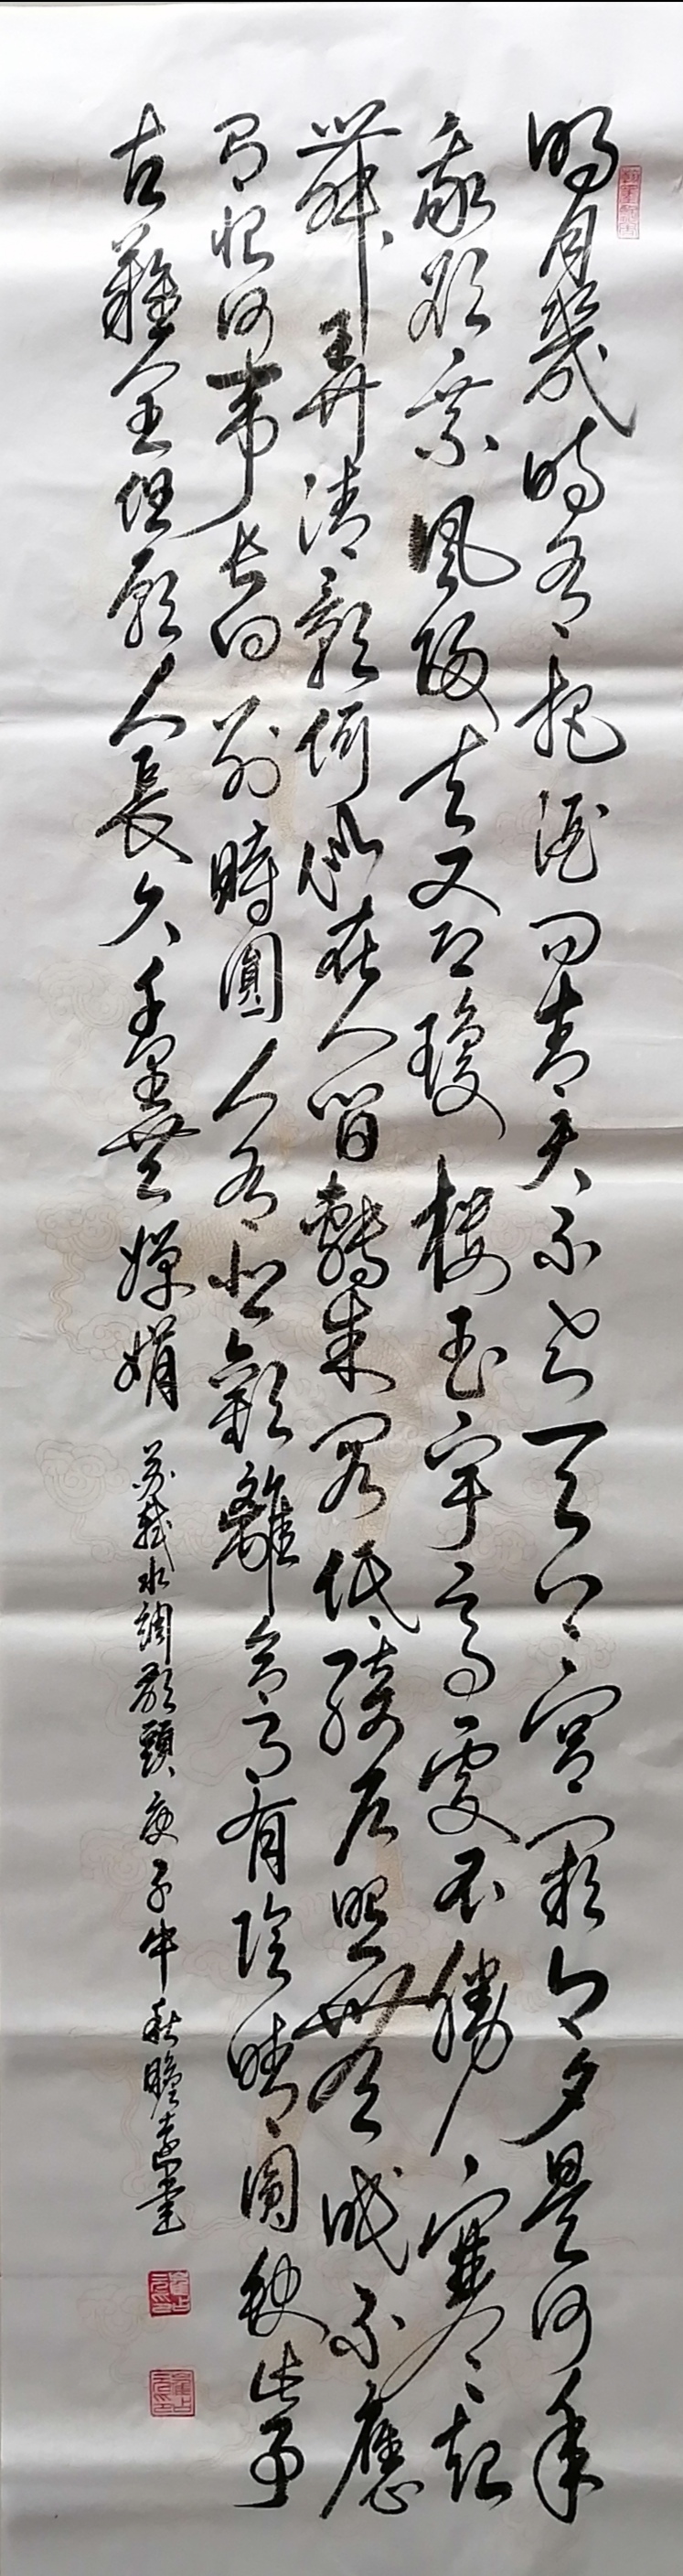 明月幾時有把酒問青天不知天上宮闕今夕是何年
我欲乘風歸去又恐瓊樓玉宇高處不勝寒起
舞弄清影何似在人間轉朱閣低綺戶照無眠不應
有恨何事長向別時圓人有悲歡離合月有陰晴圓缺此事
古難全但願人長久千里共嬋娟
蘇軾水調歌頭庚子中秋